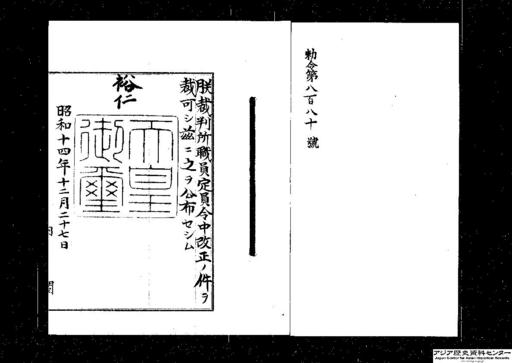 勅令第八百八十號
朕裁判所職員定員令中改正ノ件ヲ
裁可シ茲ニ之ヲ公布セシム
裕仁
天皇
御璽
昭和十四年十二月二十七日
内閣
アジア歴史資料センター
Japan Center for Asian Historical Records